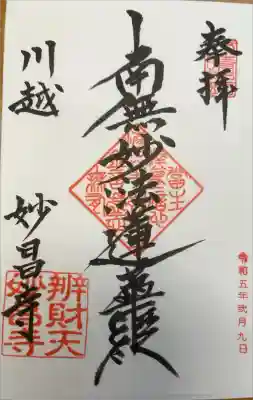 奉拝
南無妙法蓮華経
川越 妙昌寺
辨財天
妙昌寺
令和五年弐月九日